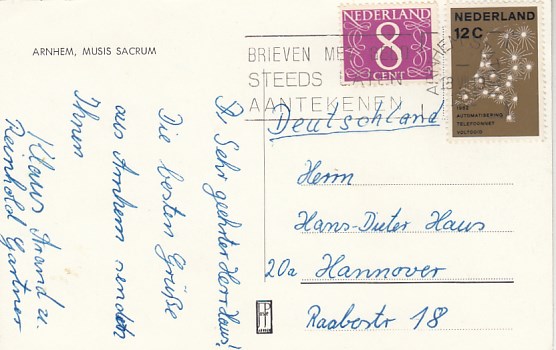 ARNHEM, MUSIS SACRUM
NEDERLAND
8
CENT
NEDERLAND
12 C
1962
AUTOMATISERING
TELEFOONNET
VOLTOOID
BRIEVEN MET
STEEDS LATEN
AANTEKENEN
ARNHEM
Sehr geehrter Herr Haus!
Die besten Grüße
aus Arnhem senden
Ihnen
Klaus Arand u.
Reinhold Gartner
Deutschland
Herrn
Hans-Dieter Haus
20a Hannover
Raabestr 18